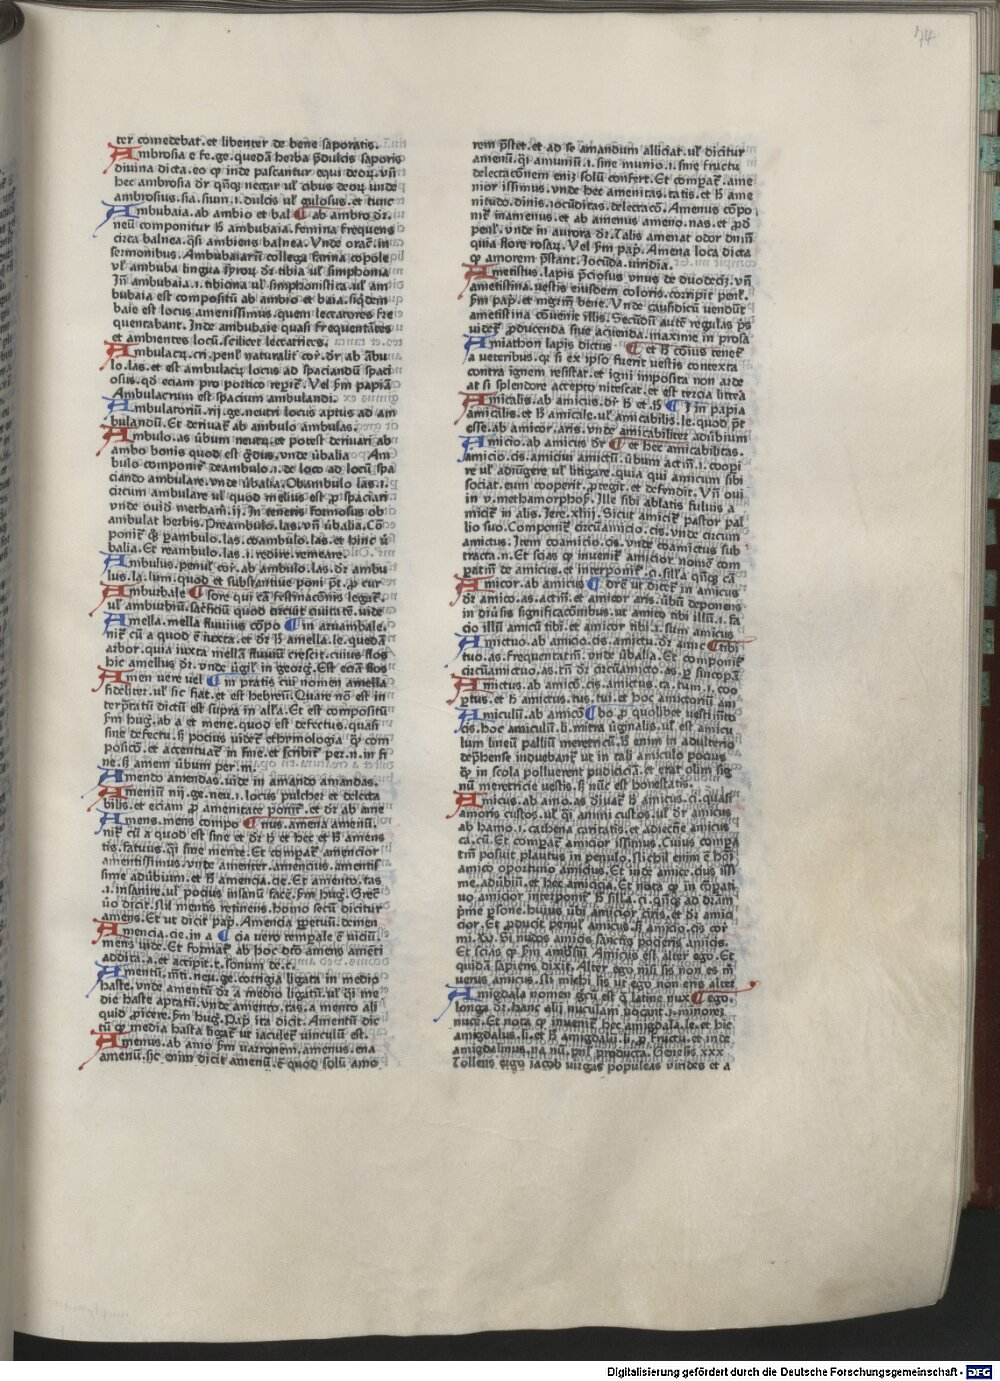 74
ter comedebat.et libenter de bene saporatis.
Ambrosia e fe.ge.quedā herba p̄dulcis saporis
divina dicta.eo ꝙ inde pascantur equi deoꝝ.vn̄
hec ambrosia dr̄ qn̄ꝗ nectar uł cibus deoꝝ unde
ambrosius.sia.sium.i.dulcis uł gulosus.et tunc
Ambubaia.ab ambio et bal ¶ ab ambro dr̄.
neū componitur ħ ambubaia.femina frequens
circa balnea.q̄si ambiens balnea.Vnde orac̄.in
sermonibus.Ambubaiarū collega farina copole
uł ambuba lingua syroꝝ dr̄ tibia uł simphonia
Jn̄ ambubaia.i.tibicina uł simphonistica.uł am
bubaia est compositū ab ambio et baia.siq̄dem
baie est locus amenissimus.quem leccatores fre
quentabant.Inde ambubaie quasi frequentātes
et ambientes locū.scilicet leccatrices.
Ambulacꝝ.cri.penł naturalit̄ cor̄.dr̄ ab ābu
lo.las.et est ambulacꝝ locus ad spaciandū spaci
osus.qd̓ eciam pro postico repit̄.Vel s̄m papiā
Ambulacrum est spacium ambulandi.
Ambulatoriū.rij.ge.neutri locus aptus ad am
bulandū.Et derivat̄ ab ambulo ambulas.
Ambulo.as ūbum neutꝝ.et potest derivari ab
ambo bonis quod est ḡdius.vnde ūbalia Am
bulo componit̄ deambulo.i.de loco ad locū spa
ciando ambulare.vnde ūbalia.Obambulo las.i.
circum ambulare uł quod melius est ꝓ spaciari
vnde ouid̓ metham̄.ij.In teneris formosus ob
ambulat herbis.Preambulo.las.vn̄ ūbalia.Cō
ponit̄ ꝗ̄ ꝑambulo.las.coambulo.las.et hinc ū
balia.Et reambulo.las.i.redire.remeare.
Ambulus.penuł cor̄.ab ambulo.las.dr̄ ambu
lus.la.lum.quod et substantiue poni p̄t.ꝓ cur
Amburbale ¶ sore qui cā festinacōnis legat̄.
uł amburbiū.sacrificiū quod circuit ciuitatē.vide
Amella.mella fluuius cōpo ¶ in aruambale.
nit̄ cū a quod ē iuxta.et dr̄ ħ amella.le.quedā
arbor.quia iuxta mellā fluuiū crescit.cuius flos
hic amellus dr̄.vnde ūgil̄ in georḡ.Est eciā flos
Amen uere uel ¶ in pratis cui nomen amella
fideliter.uł sic fiat.et est hebreū.Quare nō est in
terp̄tatū dictū est supra in alla.Et est compositū
s̄m hug̓.ab a et mene.quod est defectus.quasi
sine defectu.s̄ pocius uidet̄ ethymologia ꝙ̄ com
posicō.et accentuat̄ in fine.et scribit̄ per.n.in fi
ne.s̄ amem ūbum per.m.
Amendo amendas.uide in amando amandas.
Ameniū nij.ge.neu.i.locus pulcher et delecta
bilis.et eciam ꝓ amenitate ponit̄.et dr̄ ab ame
Amens.mens compo ¶ nus.amena amenū.
nit̄ cū a quod est sine et dr̄ ħ et hec et ħ amens
tis.fatuus.q̄i sine mente.Et compat̄ amencior
amentissimus.vnde amenter.amencius.amentis
sime adūbium.et ħ amencia.cie.Et amento.tas
.i.insanire.uł pocius insanū face.s̄m hug̓.Grec̄
ūo dicit.Nil mentis retinens.homo secū dicitur
amens.Et ut dicit pap̄.Amencia ꝑpetuū.demen
Amencia.cie.in a ¶ cia uero tempale ē uiciū.
mens uide.Et format̄ ab hoc dtō amens amēti
addita.a.et accipit.t.sonum de.c.
Amentū.mti.neu.ge.corrigia ligata in medio
haste.vnde amentū dr̄ a medio ligatū.uł q̄i me
die haste aptatū.vnde amento.tas.a mento ali
quid ꝓicere.s̄m hug̓.Pap̄ ita dicit.Amentū dic
tū ꝙ media hasta ligat̄ ut iaculet̄ vinculū est.
Amenus.ab amo s̄m uarronem.amenus.ena
amenū.sic enim dicit̄ amenū.ē quod solū amo
rem p̄stet.et ad se amandum alliciat.uł dicitur
amenū.q̄i amuniū.i.sine munio.i.sine fructu
delectacōnem eni; solū confert.Et compat̄.ame
nior issimus.vnde hec amenitas.tatis.et ħ ame
nitudo.dinis.iocūditas.delectacō.Amenus cōpo
nit̄ inamenus.et ab amenus ameno.nas.et ꝓd̓
penł.vnde in aurora dr̄.Talis amenat odor dn̄m
quia flore rosaꝝ.Vel s̄m pap̄.Amena loca dicta
ꝙ amorem p̄stant.Jocūda.uiridia.
Ametistus.lapis p̄ciosus unus de duodeci;.vn̄
ametistina.uestis eiusdem coloris.corripit penł.
s̄m pap̄.et mgr̄m bene.Vnde causidicū vendūt
ametistina cōvenit illis.Secūdū autē regulas p̄s
videt̄ ꝓducenda siue acuenda.maxime in prosa
Amiathon lapis dictus ¶ et ħ cōius tenet̄
a veteribus.ꝙ si ex ipso fuerit uestis contexta
contra ignem resistat.et igni imposita non arde
at si splendore accepto nitescat.et est tercia littrā
Amicalis.ab amicus.dr̄ ħ et ħ ¶ J in papia
amicalis.et ħ amicale.uł amicabilis.le.quod p̄t
esse.ab amicor.aris.vnde amicabiliter adūbium
Amicio.ab amicus dr̄ ¶ et hec amicabilitas.
amicio.cis.amiciui amictū.ūbum actm̄.i.coopi
re uł adiūgere uł litigare.quia qui amicum sibi
sociat.eum cooperit.ꝓtegit.et defendit.Vn̄ oui
in v.methamorphos̄.Ille sibi ablatis fuluis a
micit̄ in alis.Iere.xliij.Sicut amicit̄ pastor pal
lio suo.Componit̄ circūamicio.cis.vnde circum
amictus.Item coamicio.cis.vnde coamictus sub
tracta.n.Et scias ꝙ inuenit̄ amicior nomē com
patm̄ de amicus.et interponit̄.o.silla q̄nꝗ cā
Amicor.ab amicus ¶ dr̄e ut dicet̄ in amicus
dr̄ amico.as.actm̄.et amicor aris.ūbū deponens
in diūsis significacōnibus.ut amico tibi illū.i.fa
cio illū amicū tibi.et amicor tibi.i.sum amicus
Amictuo.ab amicio.cis.amictu.dr̄ amic ¶ tibi
tuo.as.frequentatm̄.vnde ūbalia.Et componit̄
circūamictuo.as.tn̄ dr̄ circūamicto.as.ꝑ sincopā
Amictus.ab amicō.cis.amictus.ta.tum.i.coo
ꝑtus.et ħ amictus.tus.tui.et hoc amictoriū ami
Amiculū.ab amicō ¶ bo.ꝓ quolibet uestimēto
cis.hoc amiculū.li.mitra ūginalis.uł est amicu
lum lineū palliū meretricū.ħ enim in adulterio
dep̄hense induebant̄ ut in tali amiculo pocius
ꝙ̄ in stola polluerent pudiciciā.et erat olim sig
nū meretricie uestis.s̄ nūc est honestatis.
Amicus.ab amo.as diuat̄ ħ amicus.ci.quasi
amoris custos.uł q̄i animi custos.uł dr̄ amicus
ab hamo.i.cathena caritatis.et adiectiē amicus
ca.cū.Et compat̄ amicior issimus.Cuius compa
tm̄ posuit plautus in penulo.Nichil enim ē hoī
amico oportuno amicius.Et inde amice.cius issi
me.adūbii.et hec amicicia.Et nota ꝙ in cōpati
uo amicior interponit̄ ħ silla.ci.qn̄ꝗ ad dr̄am
p̄me ꝑsone.huius ūbi amicior.ciris.et dr̄ amici
cior.Et ꝓducit penuł amicus.s̄ amicio.cis cor
mi.cō.Si nudos amicis sanctis pocieris amicis.
Et scias ꝙ s̄m ambsiū Amicus est alter ego.Et
quidā sapiens dixit.Alter ego nisi sis non es m̄
uerus amicus.Ni michi sis ut ego non eris alter
Amigdala nomen gr̄cū est ꝗ̄ latine nux ¶ ego.
longa dr̄.hanc alij nuculam vocant.i.minorez
nucē.Et nota ꝙ inuenit̄ hec amigdala.le.et hic
amigdalus.li.et ħ amigdalū.li.ꝓ fructu.et inde
amigdalinus.na nū.pnł producta.Genesis xxx
Tollens ergo Iacob uirgas populeas virides et a
Digitalisierung gefördert durch die Deutsche Forschungsgemeinschaft - DFG